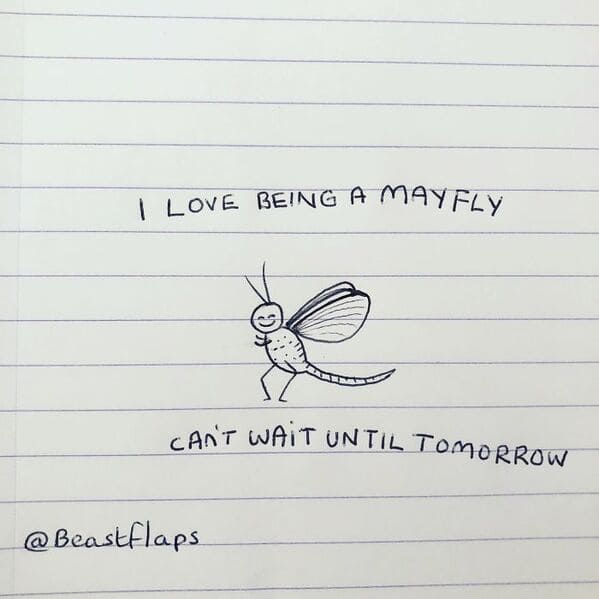 I LOVE BEING A MAYFLY
CAN'T WAIT UNTIL TOMORROW
@Beastflaps